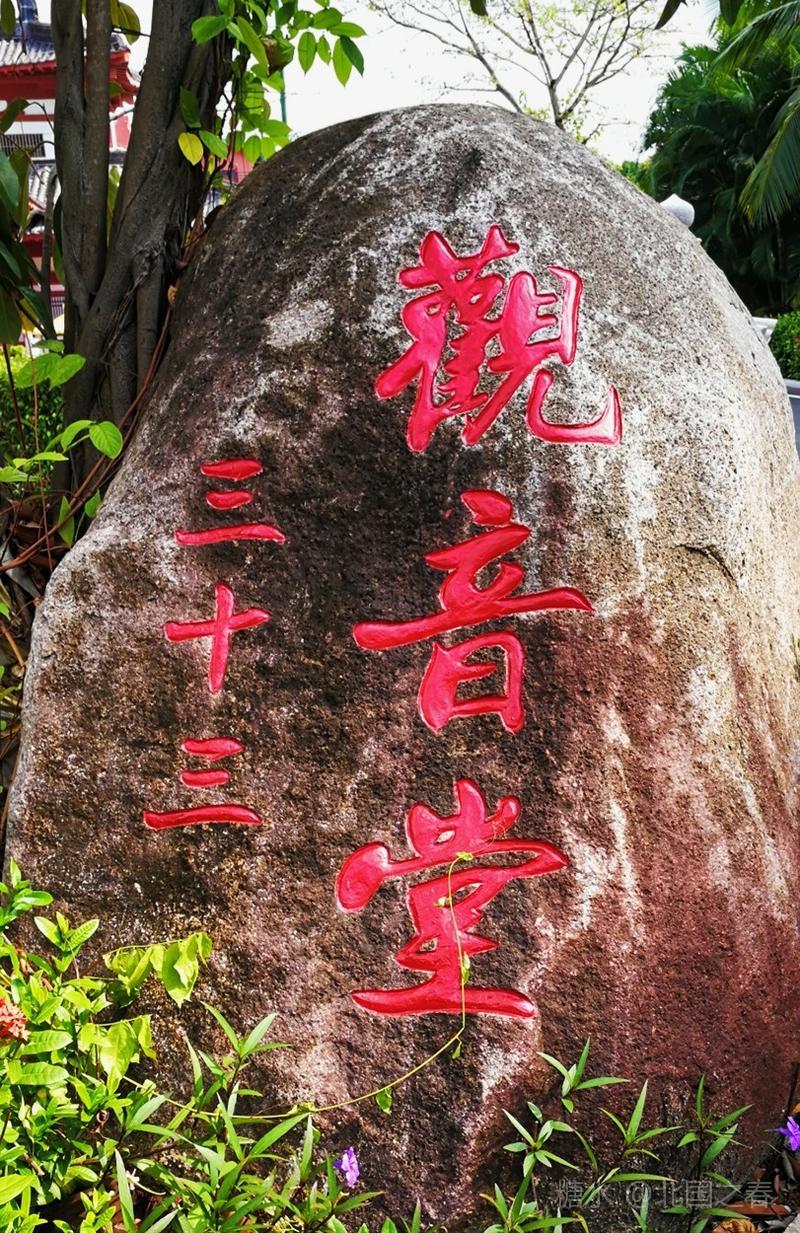 觀音堂
三十三
糖水 @北国之春